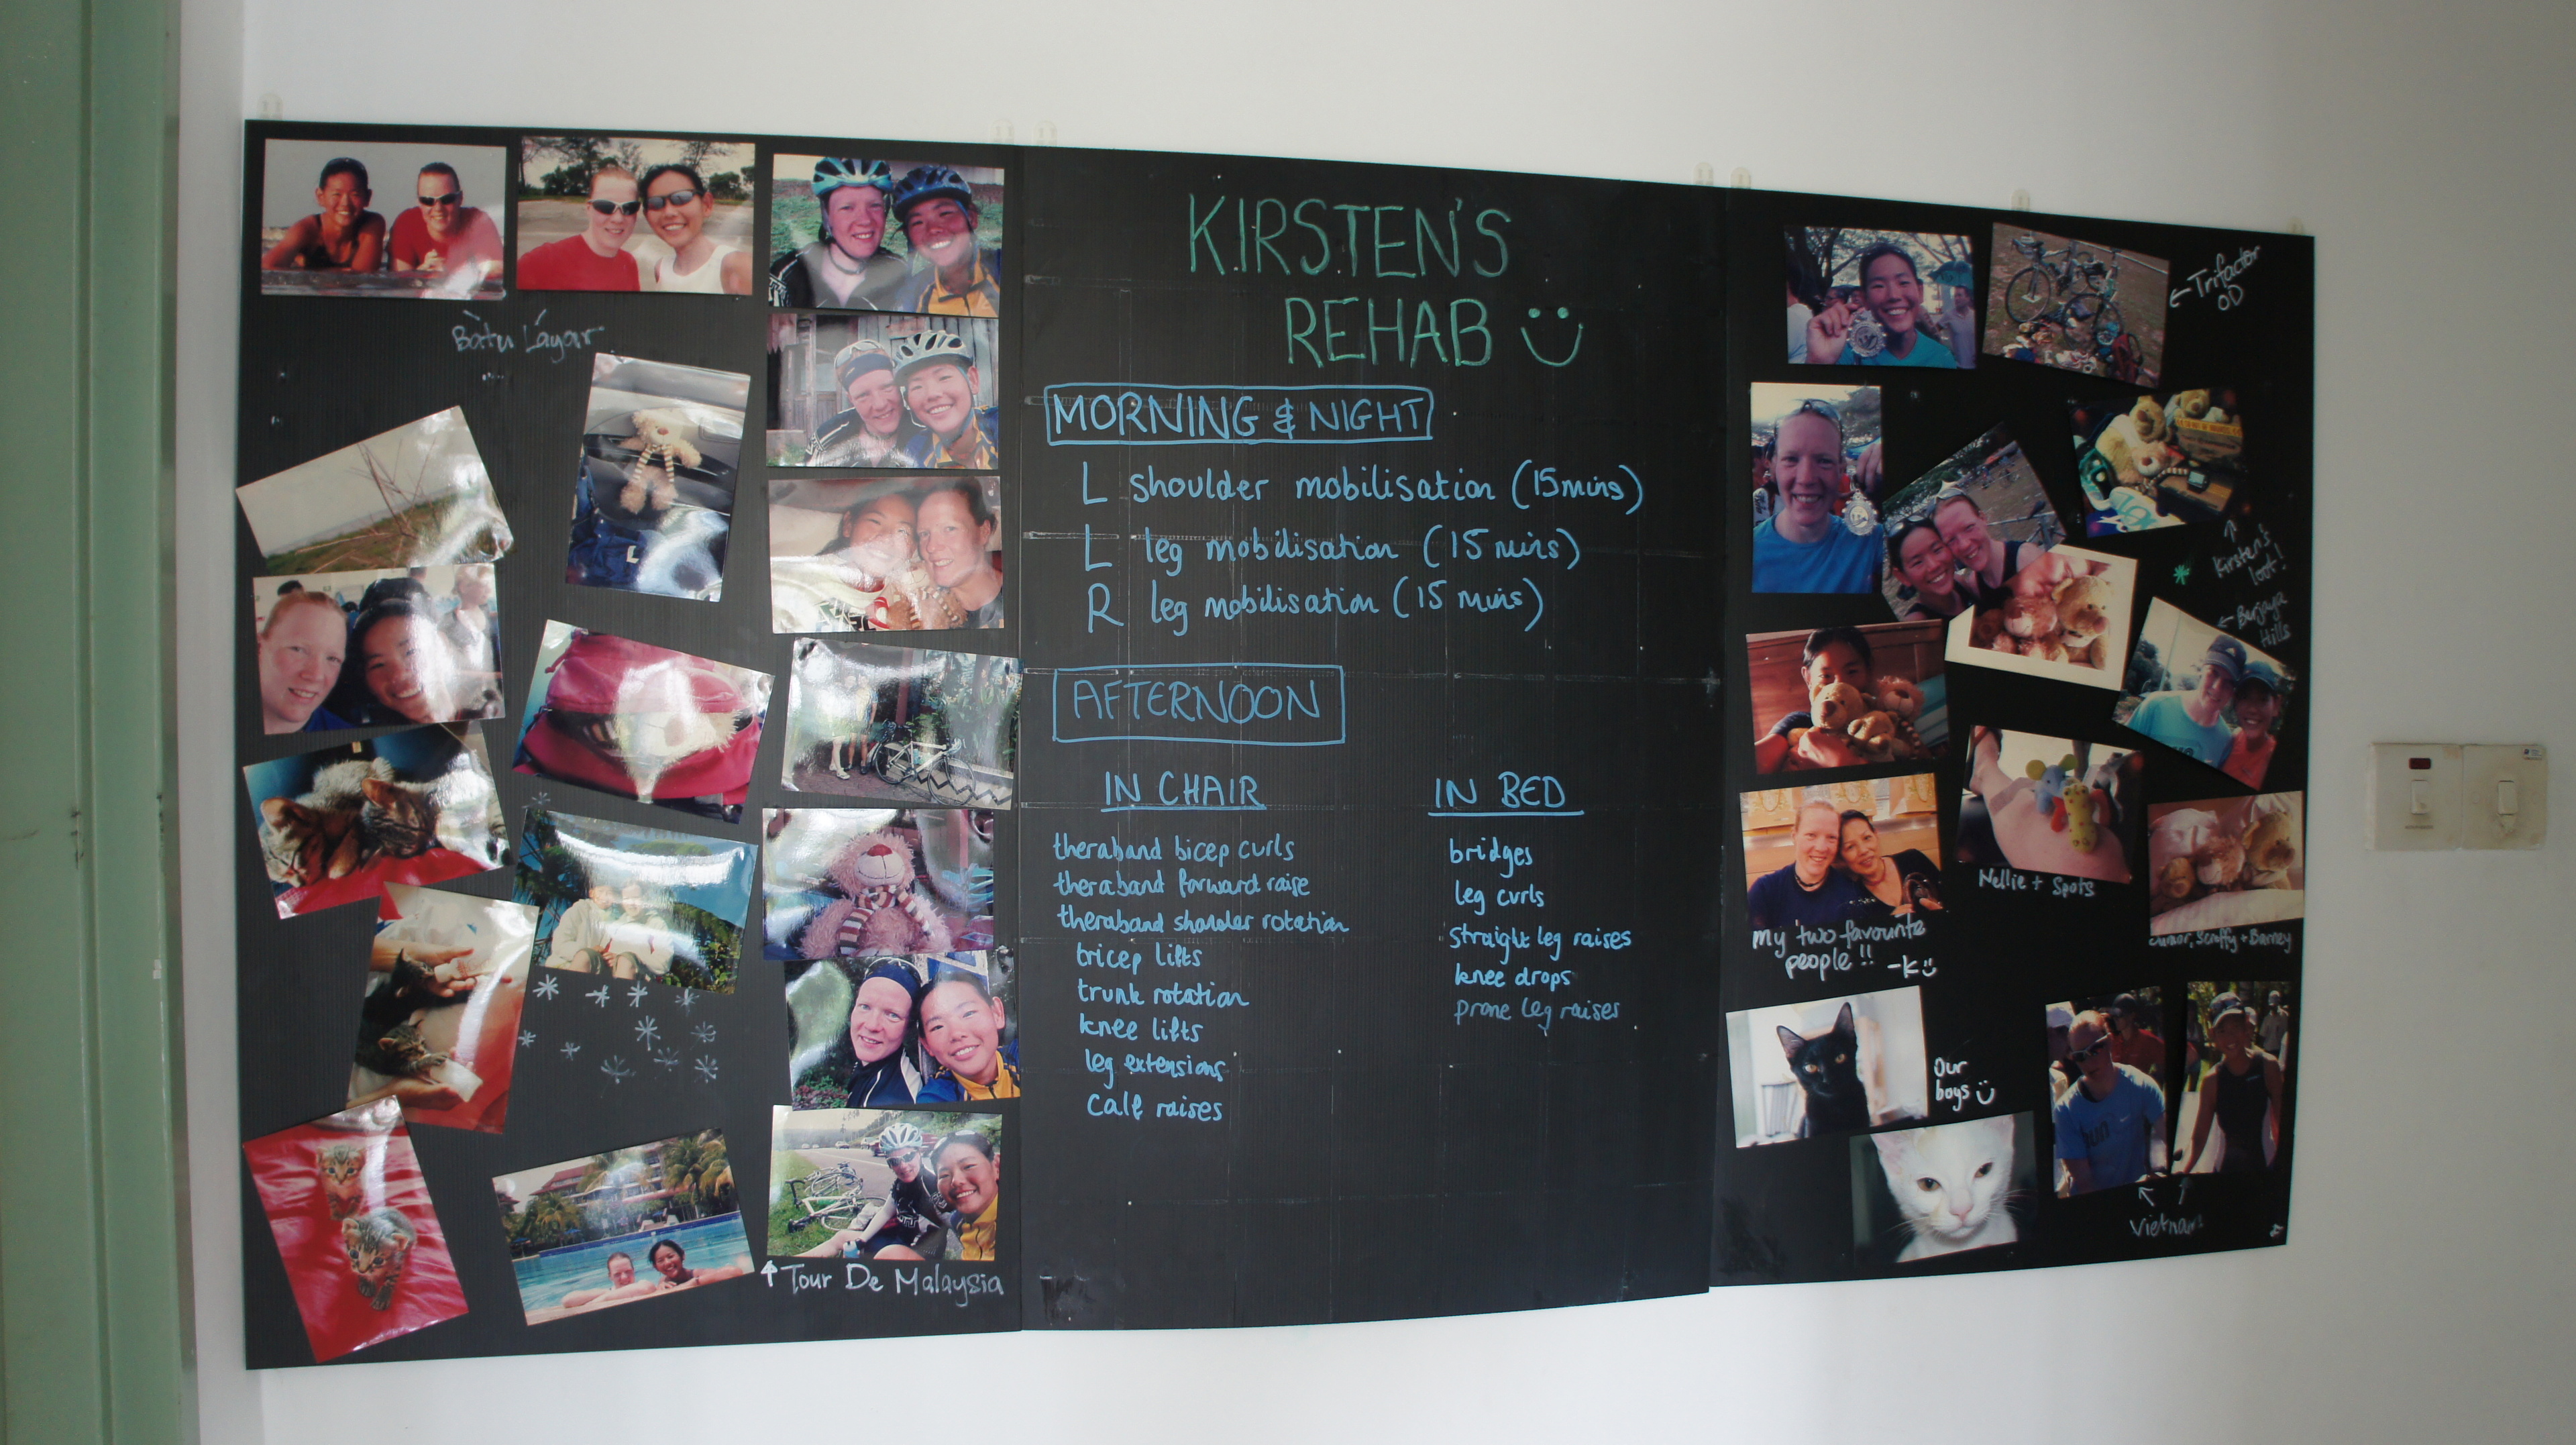 Batu Layar
↑ Tour De Malaysia
KIRSTEN'S
REHAB
MORNING & NIGHT
L shoulder mobilisation (15mins)
L leg mobilisation (15 mins)
R leg mobilisation (15 mins)
AFTERNOON
IN CHAIR
theraband bicep curls
theraband forward raise
theraband shoulder rotation
tricep lifts
trunk rotation
knee lifts
leg extensions
calf raises
IN BED
bridges
leg curls
straight leg raises
knee drops
prone leg raises
← Trifactor
OD
↑
Kirsten's
loot!
← Berjaya
Hills
Nellie + Spots
Scruffy + Barney
My two favourite
people!! -K
Our
boys
Vietnam